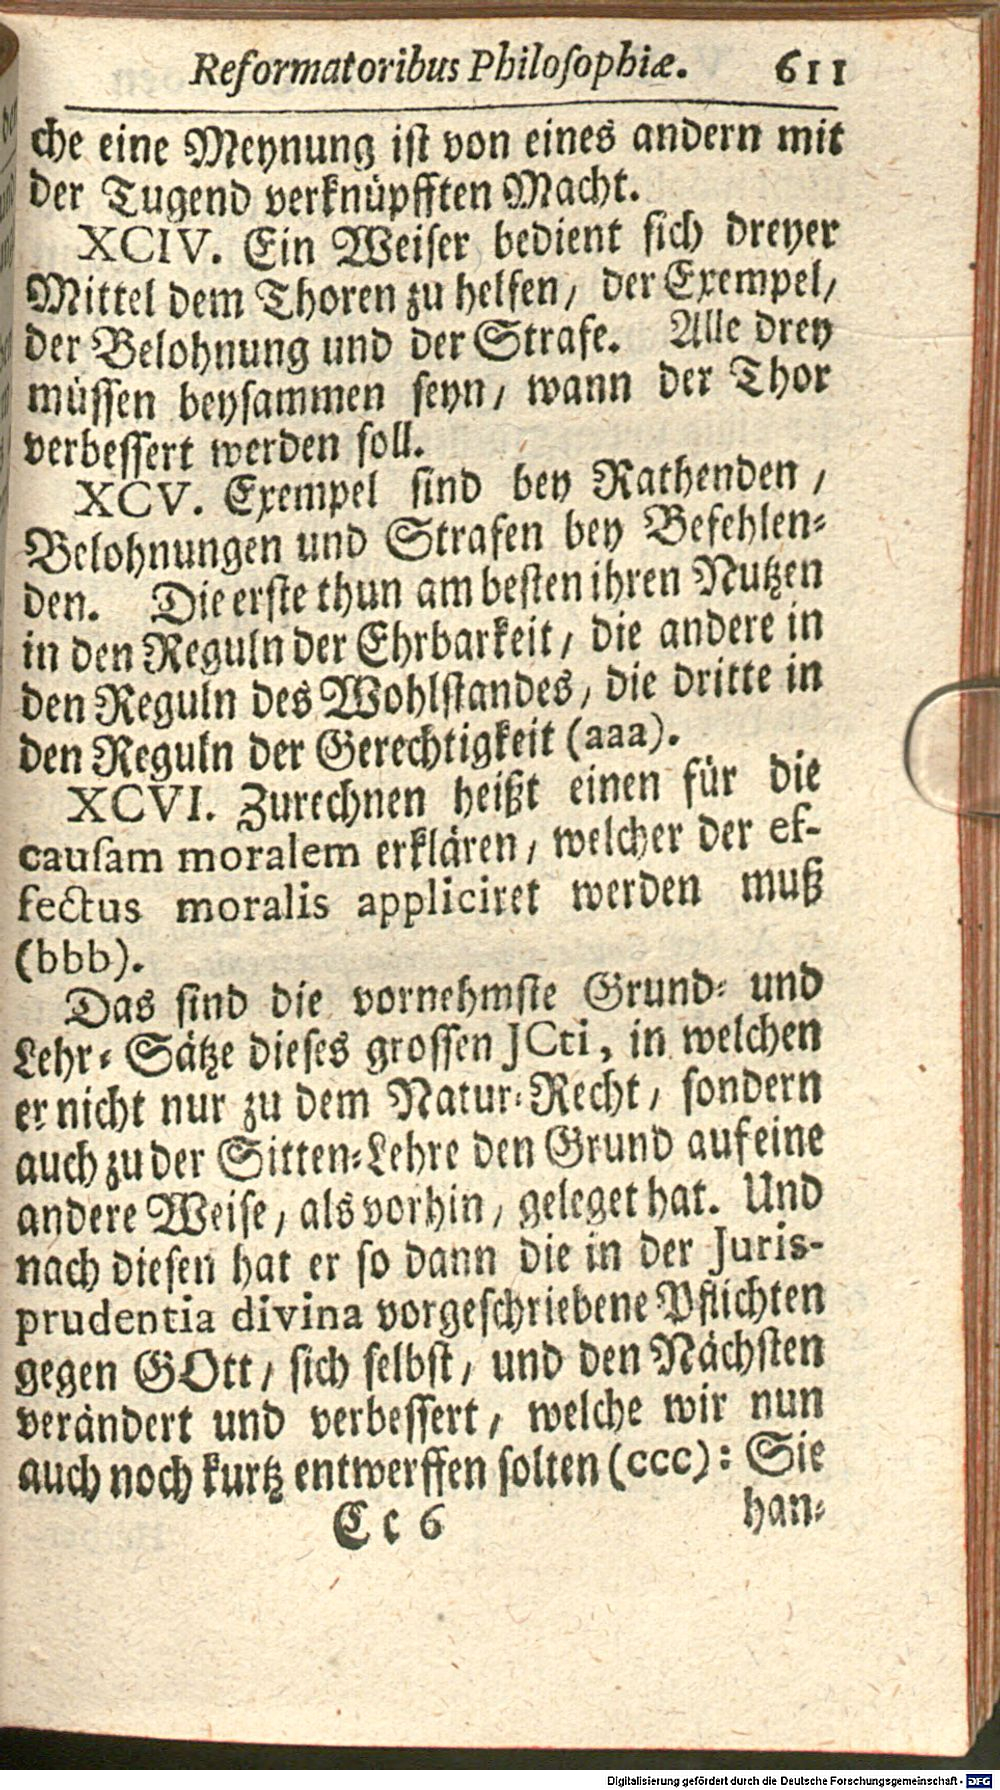 Reformatoribus Philosophiæ. 611
che eine Meynung ist von eines andern mit
der Tugend verknüpfften Macht.
XCIV. Ein Weiser bedient sich dreyer
Mittel dem Thoren zu helfen / der Exempel /
der Belohnung und der Strafe. Alle drey
müssen beysammen seyn / wann der Thor
verbessert werden soll.
XCV. Exempel sind bey Rathenden /
Belohnungen und Strafen bey Befehlen-
den. Die erste thun am besten ihren Nutzen
in den Reguln der Ehrbarkeit / die andere in
den Reguln des Wohlstandes / die dritte in
den Reguln der Gerechtigkeit (aaa).
XCVI. Zurechnen heißt einen für die
causam moralem erklären / welcher der ef-
fectus moralis appliciret werden muß
(bbb).
Das sind die vornehmste Grund- und
Lehr-Sätze dieses grossen JCti, in welchen
er nicht nur zu dem Natur-Recht / sondern
auch zu der Sitten-Lehre den Grund auf eine
andere Weise / als vorhin / geleget hat. Und
nach diesen hat er so dann die in der Juris-
prudentia divina vorgeschriebene Pflichten
gegen GOtt / sich selbst / und den Nächsten
verändert und verbessert / welche wir nun
auch noch kurtz entwerffen solten (ccc): Sie
Cc 6 han-
Digitalisierung gefördert durch die Deutsche Forschungsgemeinschaft - DFG